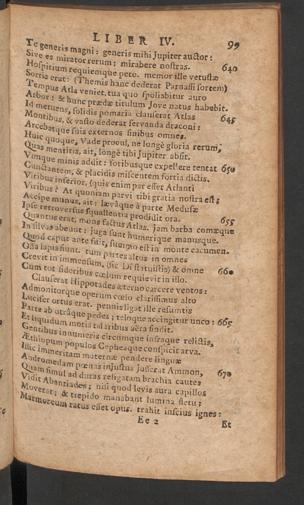 LIBER IV. 99
Te generis magni: generis mihi Jupiter auctor:
Sive es mirator rerum: mirabere nostras. 640
Hospitium requiemque peto. memor ille vetustæ
Sortis erat: (Themis hanc dederat Parnassi sortem)
Tempus Atla veniet, tua quo spoliabitur auro
Arbor: & hunc prædæ titulum Jove natus habebit.
Id metuens, solidis pomaria clauserat Atlas 645
Montibus, & vasto dederat servanda draconi:
Arcebatque suis externos finibus omnes.
Huic quoque, Vade procul, ne longè gloria rerum,
Quas mentitis, ait, longè tibi Jupiter absit.
Vimque minis addit: foribusque expellere tentat 650
Cunctantem, & placidis miscentem fortia dictis.
Viribus inferior, (quis enim par esset Atlanti
Viribus? At quoniam parvi tibi gratia nostra est;
Accipe munus, ait: lævâque à parte Medusæ
Ipse retroversus squallentia prodidit ora. 655
Quantus erat, mons factus Atlas. jam barba comæque
In silvas abeunt: juga sunt humerique manusque.
Quod caput ante fuit, summo est in monte cacumen.
Ossa lapis fiunt. tum partes altus in omnes
Crevit in immensum, (sic Dî statuistis) & omne 660
Cum tot sideribus cœlum requievit in illo.
Clauserat Hippotades æterno carcere ventos:
Admonitorque operum cœlo clarissimus alto
Lucifer ortus erat. pennis ligat ille resumtis
Parte ab utrâque pedes; teloque accingitur unco: 665
Et liquidum motis talaribus aëra findit.
Gentibus innumeris circumque infraque relictis,
Æthiopum populos Cepheaque conspicit arva.
Illic immeritam maternæ pendere linguæ
Andromedam pœnas injustus jusserat Ammon, 670
Quam simul ad duras religatam brachia cautes
Vidit Abantiades; nisi quod levis aura capillos
Moverat; & trepido manabant lumina fletu:
Marmoreum ratus esset opus. trahit inscius ignes:
Ee 2 Et